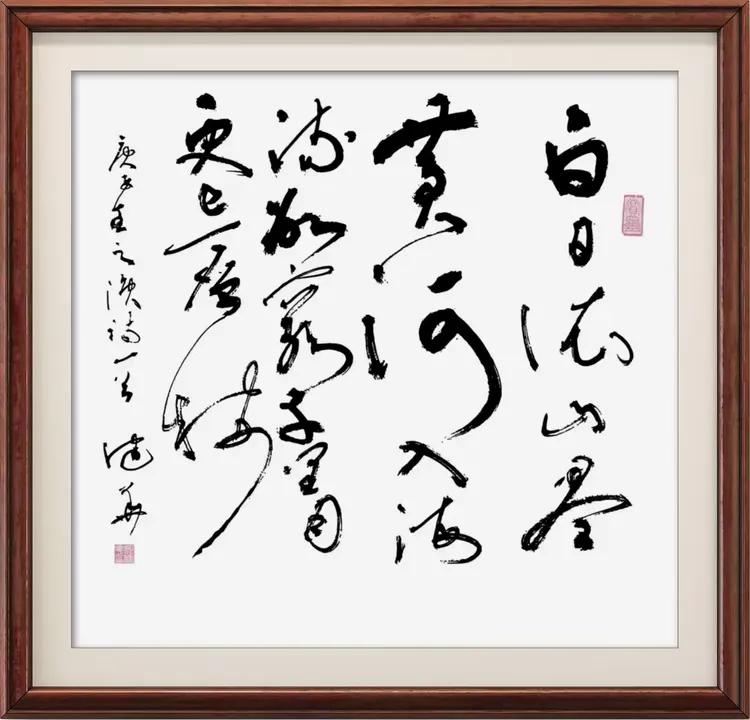 白日依山尽
黄河入海
流欲窮千里目
更上一層樓
庚子春之 诗一首
建华